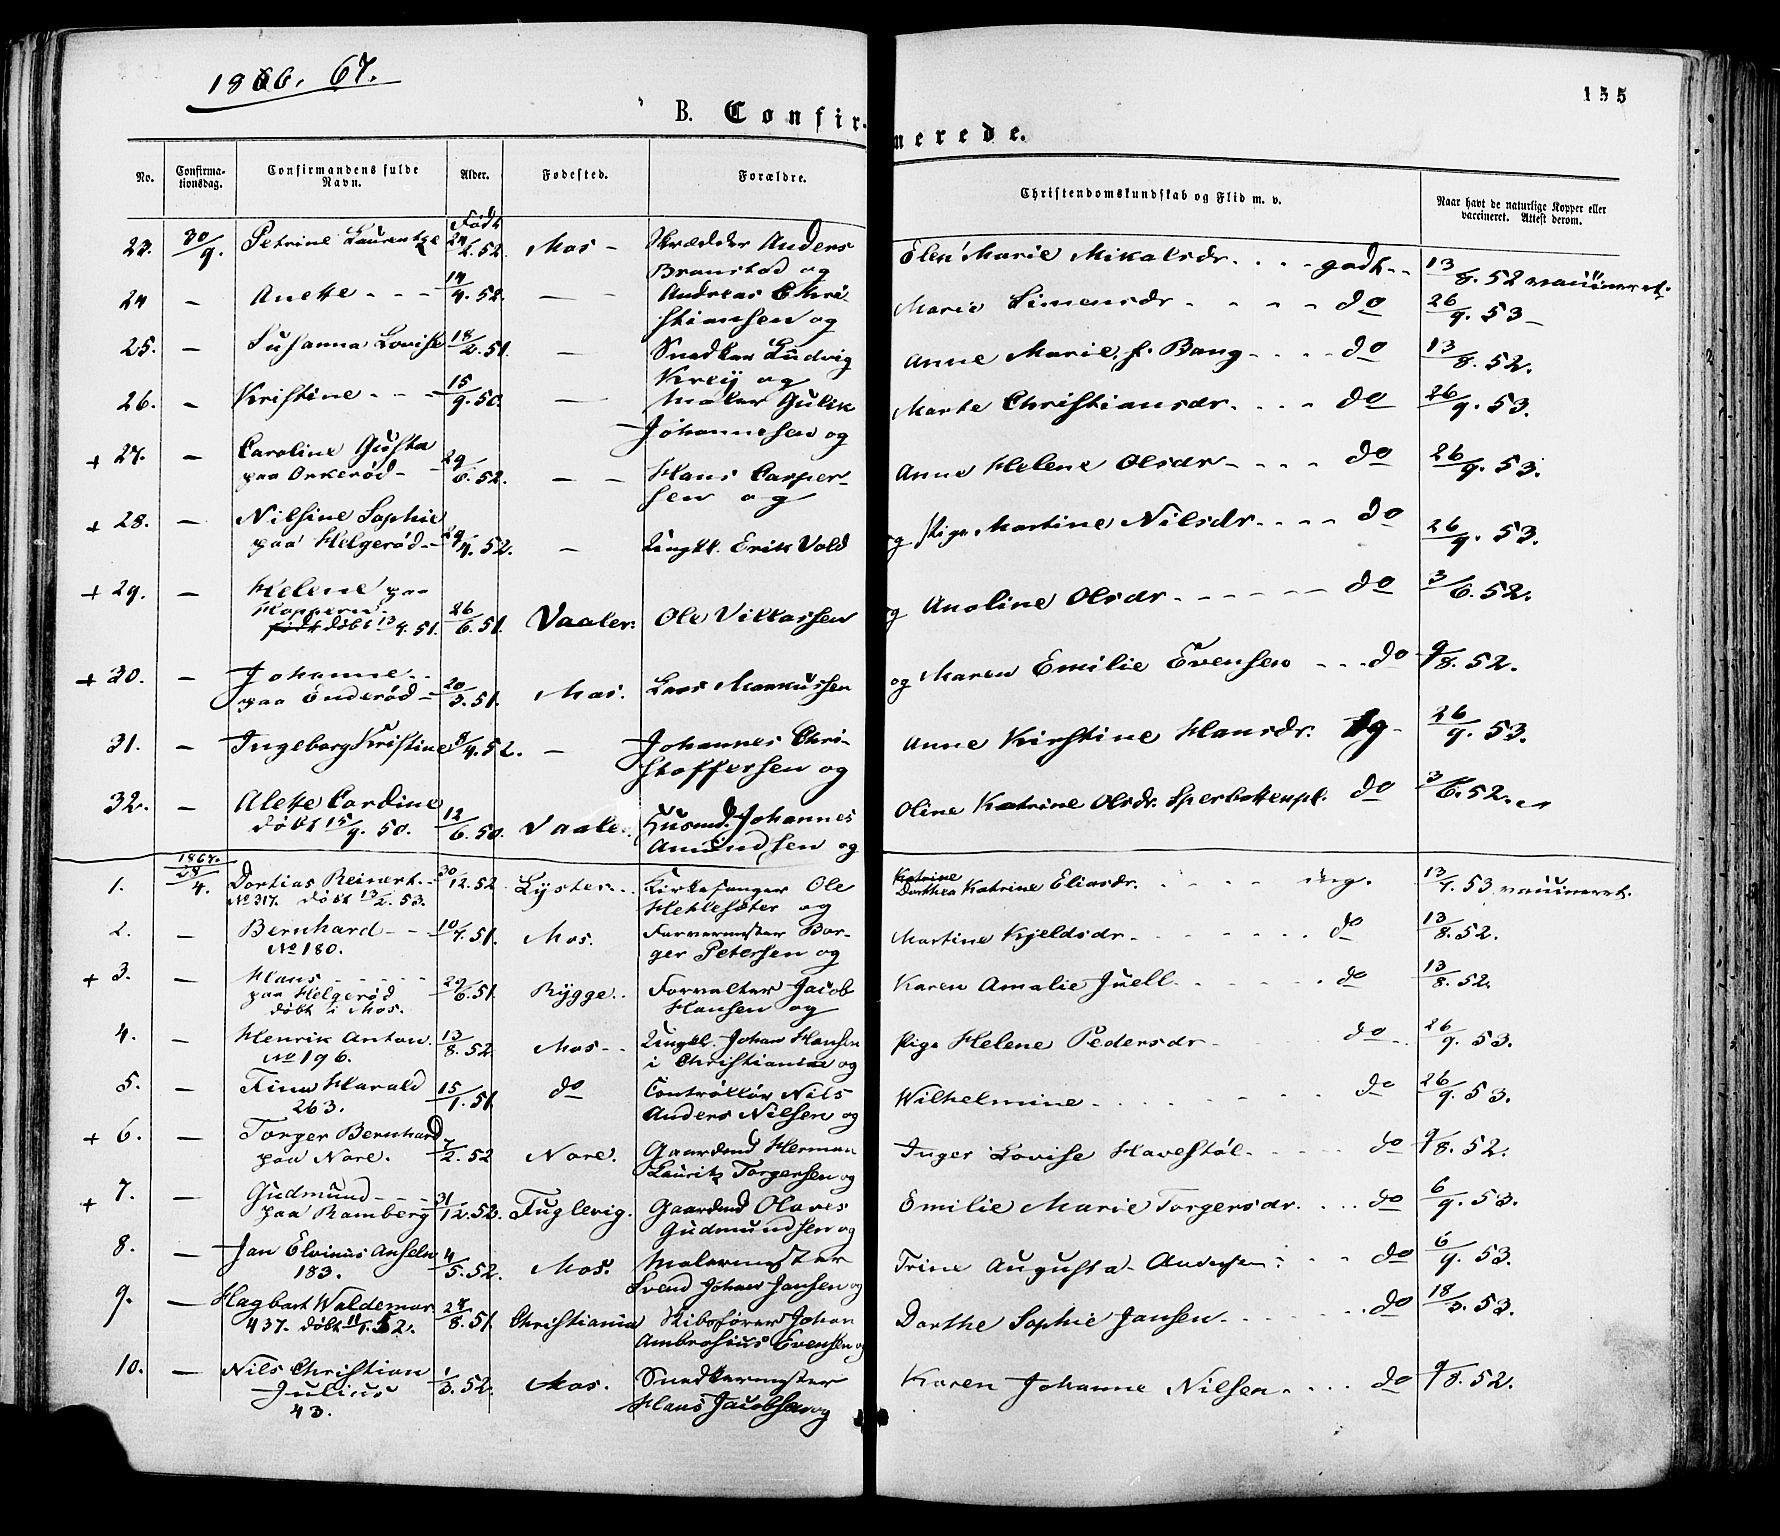 1866. 67.
155
B. Confir-
merede.
No.
Confirma-
tionsdag.
Confirmandens fulde
Navn.
Alder.
Fødested.
Forældre.
Christendomskundskab og Flid m. v.
Naar havt de naturlige Kopper eller
vaccineret. Attest derom.
Født
23. 30/9. Petrine Laurentze 24/2.52. Mos – Skrædder Anders Elen Marie Mikalsdr. . . . godt . . 13/8.52 vaccineret.
Branstad og
24 – Anette – – – 14/4.52. – – Andreas Chri Marie Simensdr – – – – do 26/9.53 –
stiansen og
25. – Susanna Lovise 18/2.51. – Snedker Ludvig Anne Marie f. Bang – . . . do 13/8.52.
Kreij og
26. – Kristine – – – 15/9.50. – Maler Gulik Marte Christiansdr. . . . do 26/9.53.
Johannesen og
+ 27. – Caroline Gusta
paa Orkerød – 29/6.52. – – Hans Casper- Anne Helene Olsdr – . . . do 26/9.53.
sen og
+ 28. – Nilsine Sophie
paa Helgerød – 29/4.52. – Ungkl. Erik Vold og Pige Martine Nilsdr. – – – do 26/9.53.
+ 29. – Helene paa
døbt 13/4.51. 26/6.51. Vaaler. Ole og Anoline Olsdr – – – – – do 3/6.52.
+ 30. – Johanne . .
paa Enderød – 20/3.51. Mos. Lars Markussen og Maren Emilie Evensen – . . do 9/8.52.
31. – Ingeborg Kristine 8/4.52. – Johannes Chri- Anne Kirstine Hansdr. – 26/9.53.
stoffersen og
32. – Alette Cardine
døbt 15/9.50. 12/6.50. Vaaler. Husmd. Johannes Oline Katrine Olsdr. Sperbottenpl. do 3/6.52.
Amundsen og
1867.
1. 28/4. Dortias Reinert . . 30/12.52 Lyster . . Kirkesanger Ole Katrine
Dorthea Katrine Eliasdr. . . . . mg. 13/7.53 vaccineret.
No 317. døbt 13/2.53. Hetlesæter og
2. – Bernhard – – 10/7.51. Mos. Farvermester Bor- Martine Kjeldsdr. – . . . . do 13/8.52.
No 180. ger Petersen og
+ 3. – Hans – – – – – 29/6.51. Rygge . . Forvalter Jacob Karen Amalie Juell . – . . . . do 13/8.52.
paa Helgerød Hansen og
døbt i Mos.
4. – Henrik Anton. 13/8.52 Mos – – Ungkl. Johan Hansen Pige Helene Pedersdr – do 26/9.53.
No 196. i Christiania og
5. – Finn Harald 15/1.51. do Controllør Nils Wilhelmine – . . . . . do 26/9.53.
263. Anders Nilsen og
+ 6. – Torger Bernhard 7/2.52 Nore. Gaardmd Herman Inger Lovise Havestøl – . . . do 9/8.52.
paa Nore. Lauritz Torgersen og
+ 7. – Gudmund – – – 31/12.52. Fuglevig. Gaardmd Olaves Emilie Marie Torgersdr. . . . do 6/9.53.
paa Ramberg Gudmundsen og
8. – Jan Elvinus Anseln 4/5.52. Mos. Malermester Trine Augusta Andersen . . do 6/9.53.
183. Svend Johan Jansen og
9. – Hagbart Waldemar 28/8.51. Christiania Skibsfører Johan Dorthe Sophie Jansen . . . . do 18/3.53.
437. døbt 11/1.52. Ambrosius Evensen og
10. – Nils Christian 1/3.52. Mos. Snedkermester Karen Johanne Nilsen . . . . do 9/8.52.
Julius Hans Jacobsen og
43.